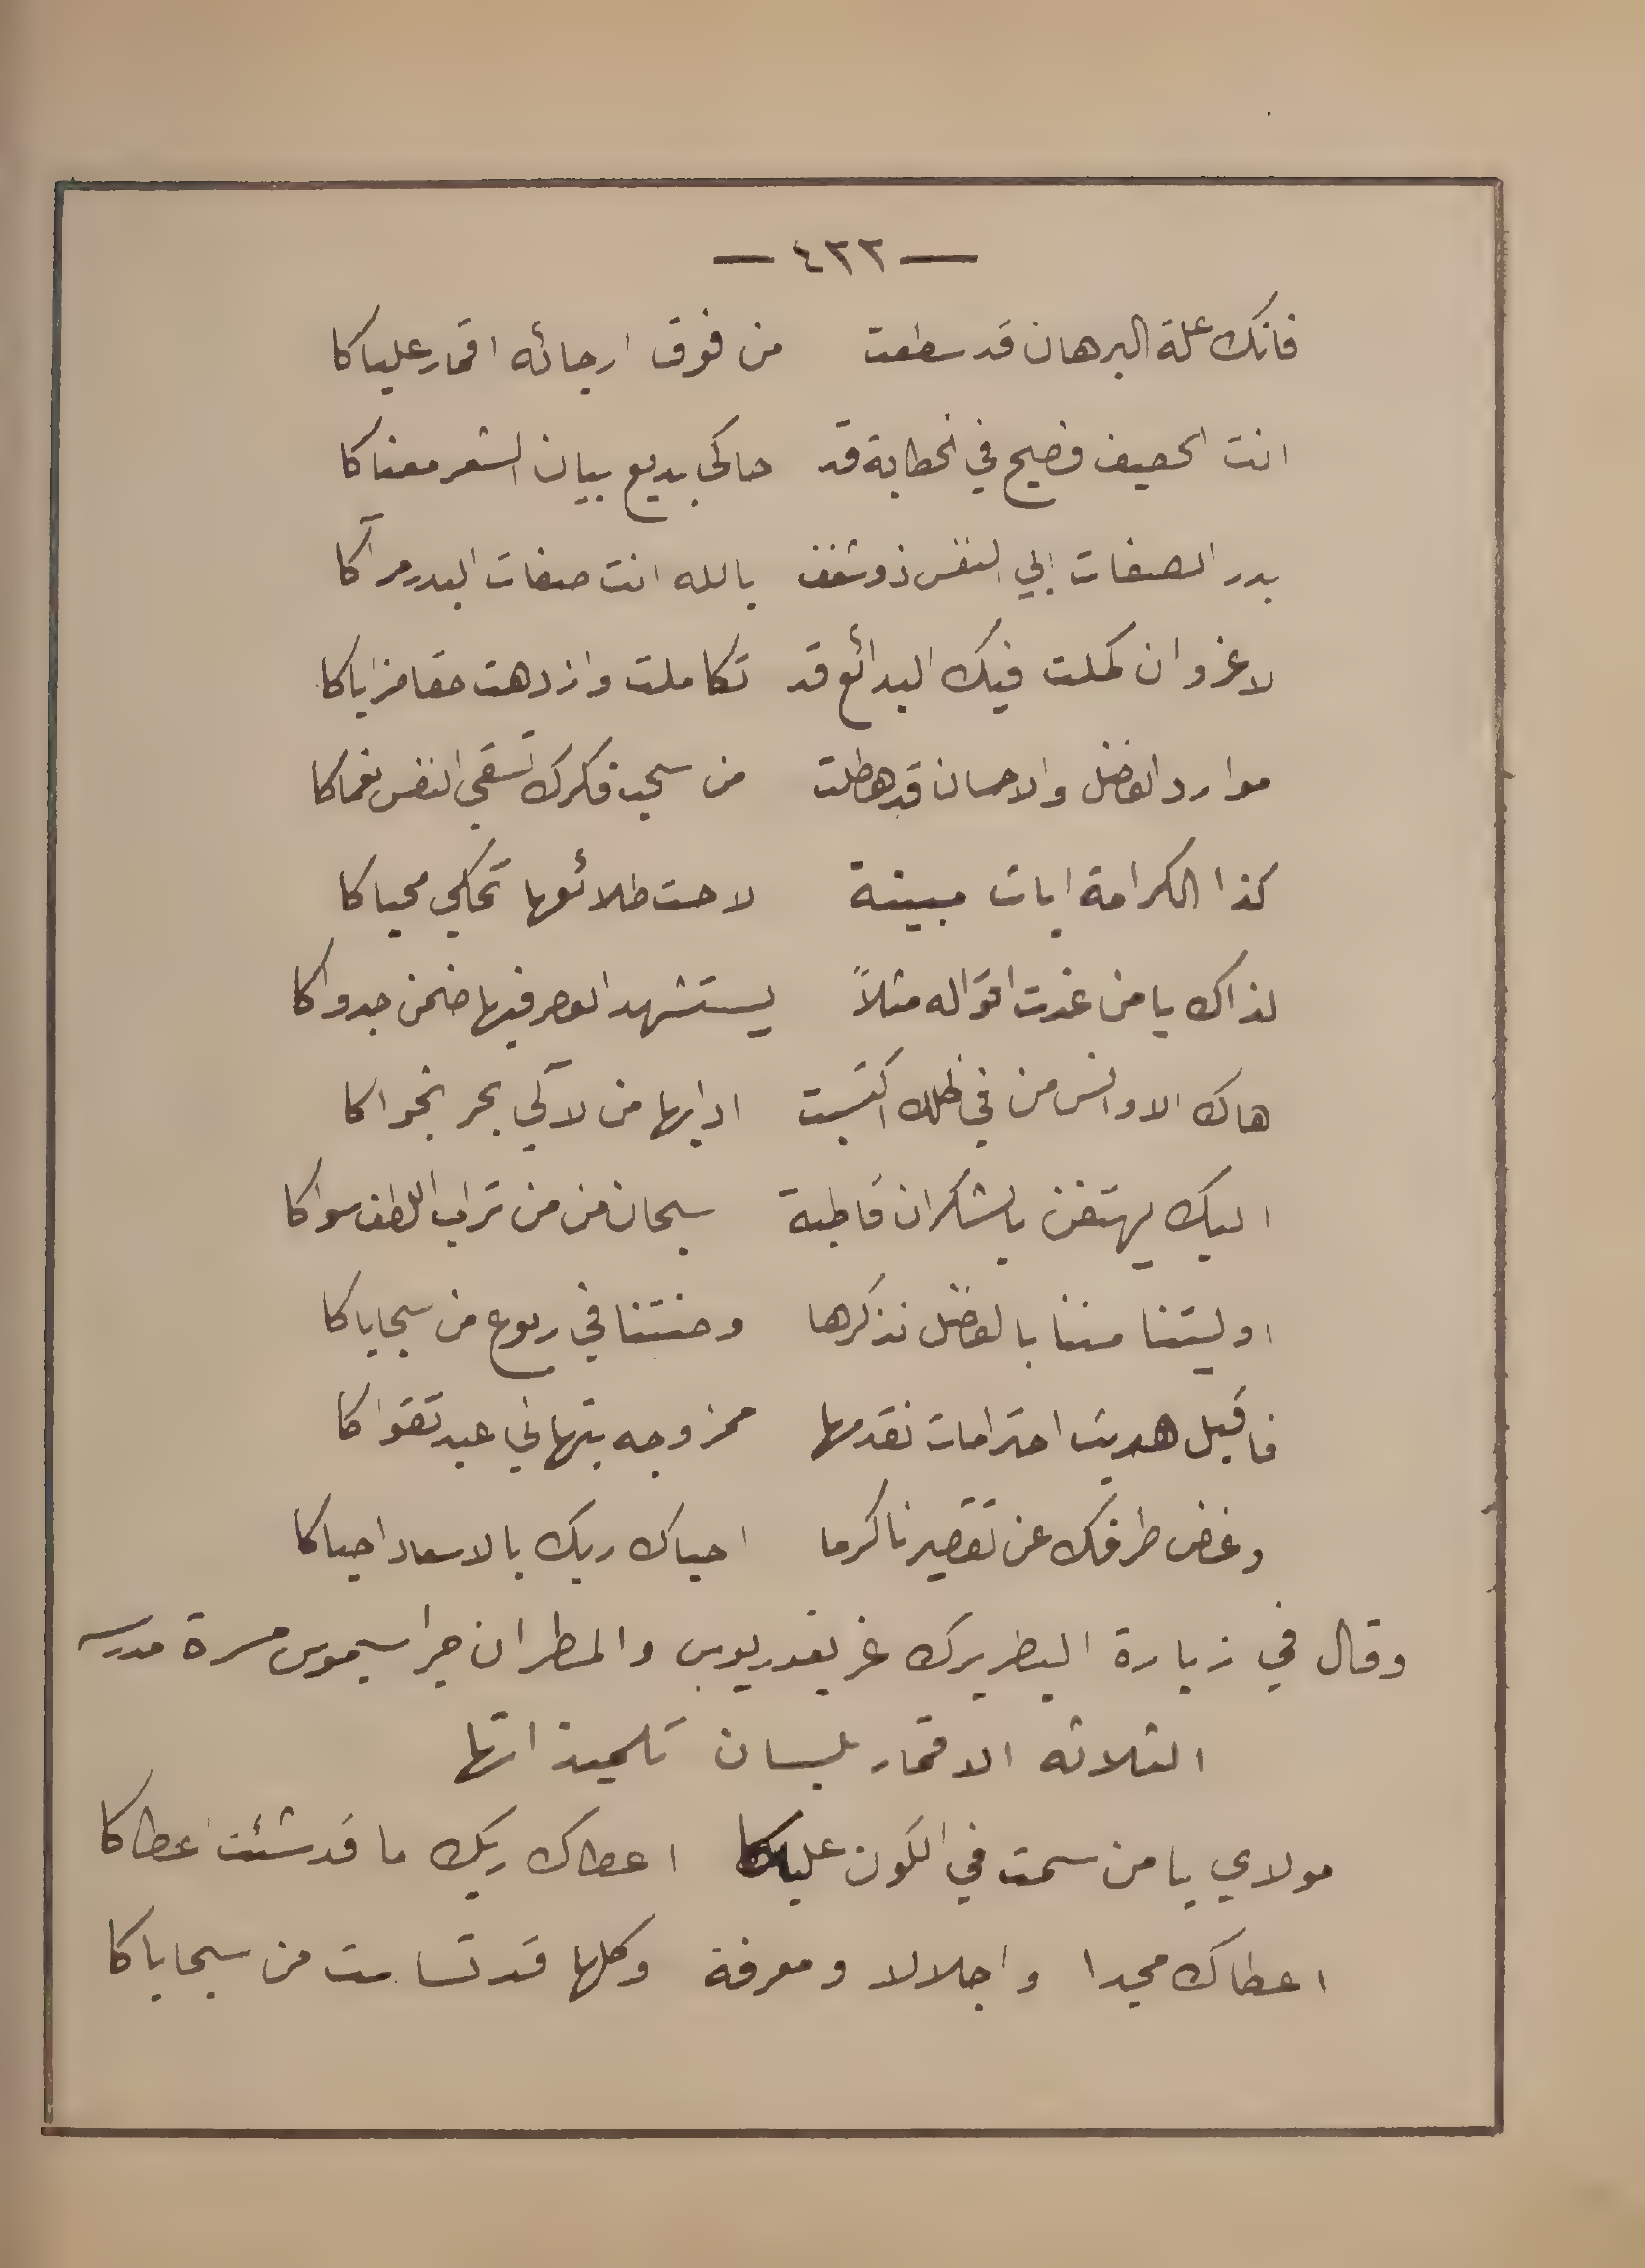 — ٤٢٢ —
فانك علة البرهان قد سطعت من فوق ارجائه اقمار علياكا
انت الحصيف فصيح في الخطابة قد حاكى بديع بيان الشعر معناكا
بدر الصفات ابي النفس ذو شغف بالله انت صفات البدر مرآكا
لا غرو ان كملت فيك البدائع قد تكاملت وازدهت حقا مزاياكا
موارد الفضل والاحسان قد هطلت من سحب فكرك تسقي النفس نعماكا
كذا الكرامة ايات مبينة لاحت طلائعها تحكي محياكا
لذاك يا من غدت اقواله مثلاً يستشهد العصر فيها ضمن جدواكا
هاك الاوانس من في ظلك اكتسبت ادابها من لآلي بحر نجواكا
اليك يهتفن بالشكران قاطبة سبحان من من تراب اللطف سواكا
اوليتنا مننا بالفضل نذكرها وصنتنا في ربوع من سجاياكا
فاقبل هديت احترامات نقدمها ممزوجه بتهاني عيد تقواكا
وغض طرفك عن تقصيرنا كرما احياك ربك بالاسعاد احياكا
وقال في زيارة البطريرك غريغوريوس والمطران جراسيموس مسرة مدرسه
الثلاثه الاقمار بلسان تلميذاتها
مولاي يا من سمت في الكون علياكا اعطاك ربك ما قد شئت اعطاكا
اعطاك مجدا واجلالا ومعرفة وكلها قد تسامت من سجاياكا